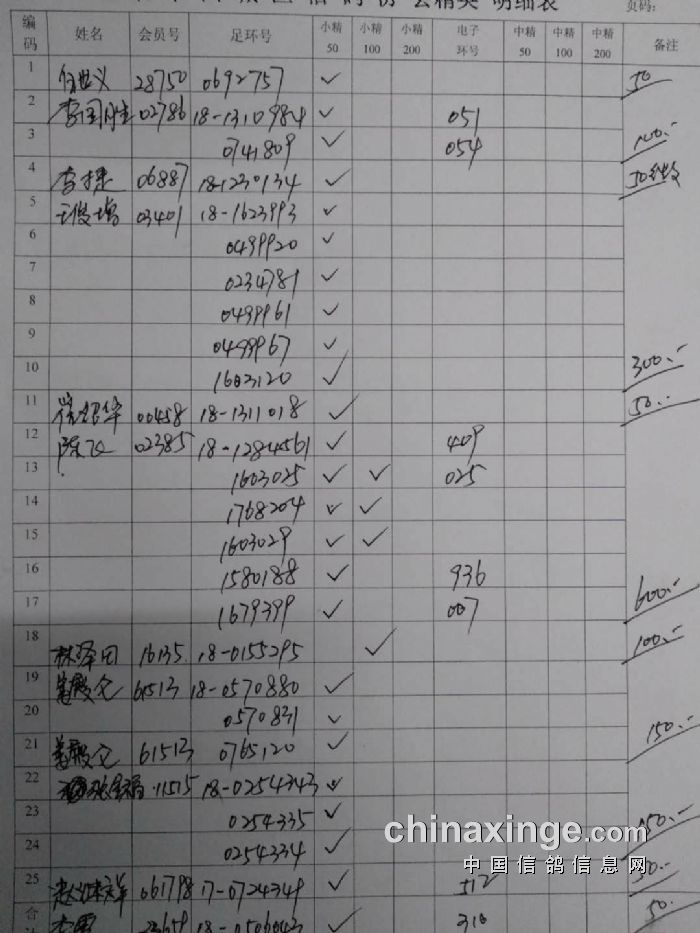 明细表 页码:
编码 姓名 会员号 足环号 小精50 小精100 小精200 电子环号 中精50 中精100 中精200 备注
1 28750 0692757 ✓ 50
2 02786 18-1310984 ✓ 051
3 0741809 ✓ 054 100.-
4 李捷 06887 18-1230134 ✓ 50
5 03401 18-1623993 ✓
6 0499920 ✓
7 0234781 ✓
8 0499961 ✓
9 0499967 ✓
10 1603120 ✓ 300.-
11 00458 18-1311018 ✓ 50.-
12 陈飞 02385 18-1284561 ✓ 409
13 1603025 ✓ ✓ 025
14 1768204 ✓ ✓
15 1603029 ✓ ✓
16 1580188 ✓ 936
17 1679399 ✓ 007 600.-
18 林泽田 16135 18-0155295 ✓ 100.-
19 61513 18-0570880 ✓
20 0570831 ✓ 150.-
21 61513 0765120 ✓
22 11515 18-0254343 ✓
23 0254335 ✓
24 0254334 ✓ 150.-
25 061798 17-0724349 ✓ 512 50.-
合计 23659 18-0506043 ✓ 310 50.
chinaxinge.com
中国信鸽信息网